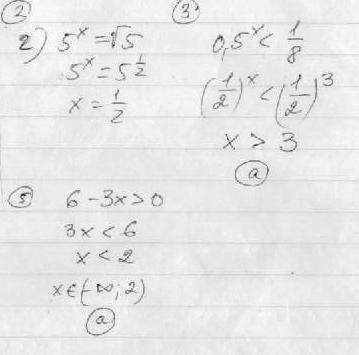 ②
2) 5^x = √5
5^x = 5^(1/2)
x = 1/2
③
0,5^x < 1/8
(1/2)^x < (1/2)^3
x > 3
ⓐ
⑤
6 - 3x > 0
3x < 6
x < 2
x ∈ (-∞; 2)
ⓐ